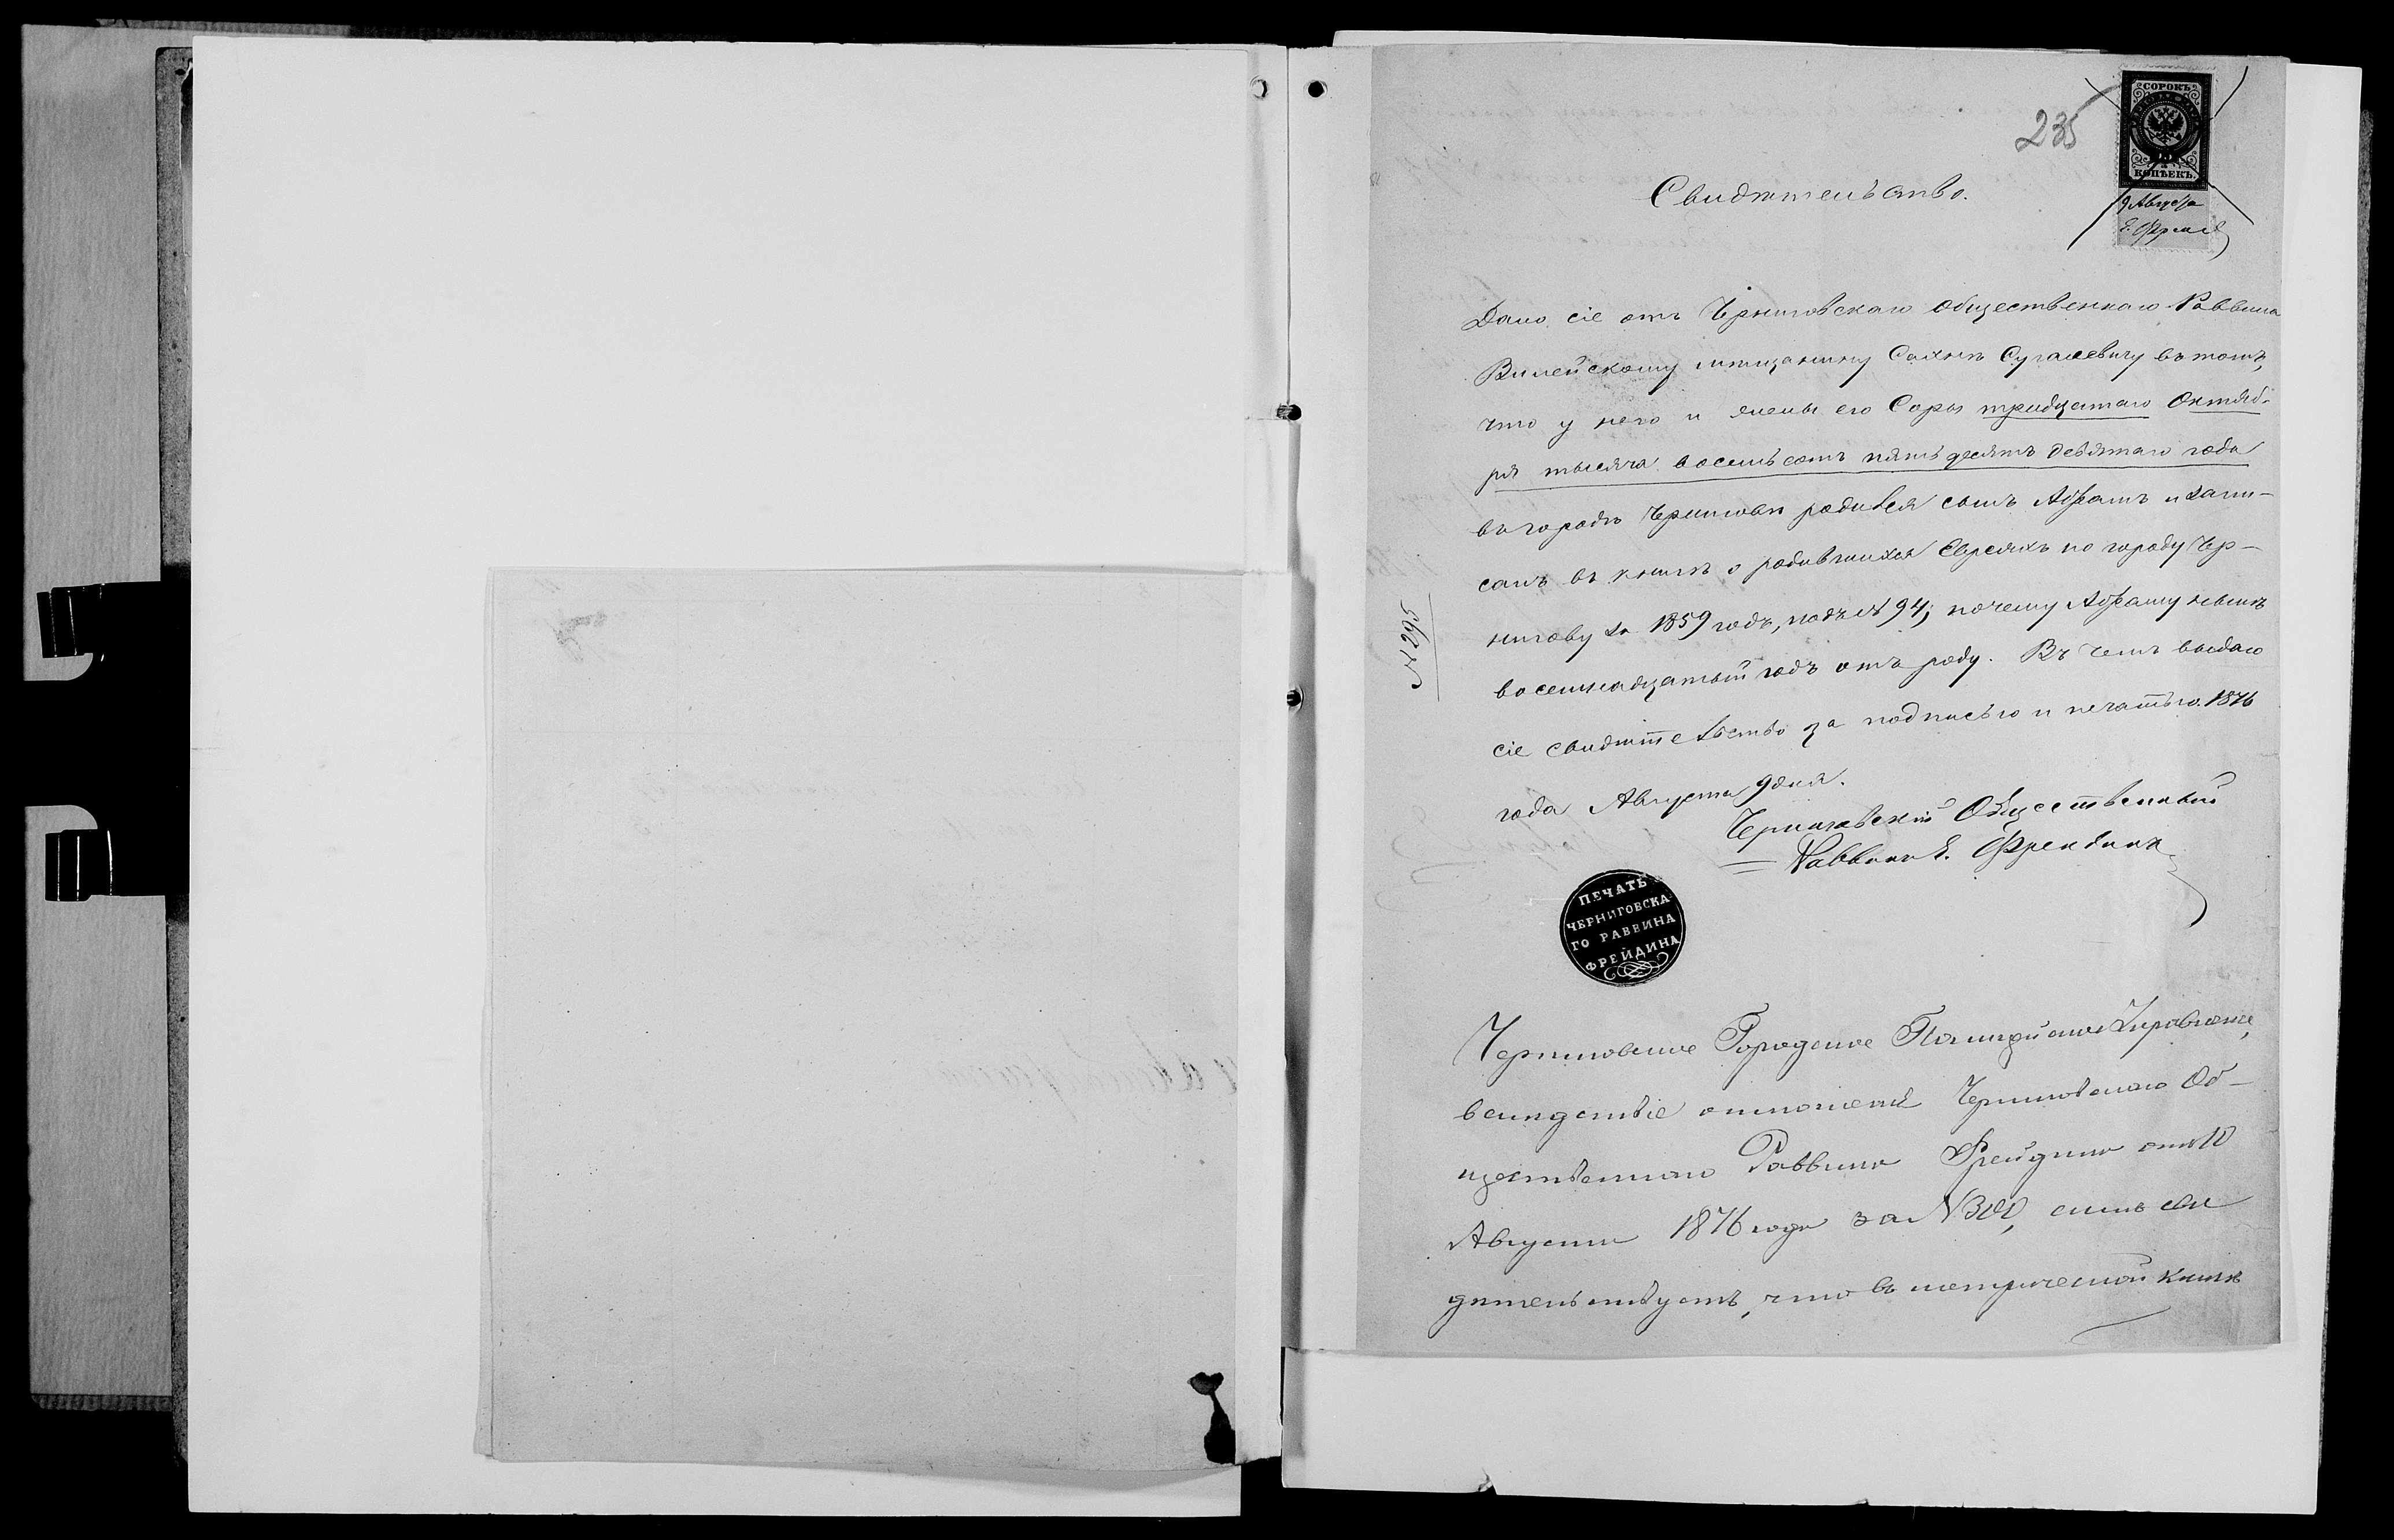 235
СОРОКЪ
КОПѢЕКЪ.
9 Августа
Е. Фрейд
Свидѣтельство.
Дано сіе отъ Черниговскаго Общественнаго Раввина
Вилейскому мѣщанину Сахнѣ въ томъ,
что у него и жены его Соры тридцатаго Октяб-
ря тысяча восемьсотъ пятьдесятъ девятаго года
въ городѣ Черниговѣ родился сынъ Абрамъ и запи-
санъ въ книгѣ о родившихся Евреяхъ по городу Чер-
нигову за 1859 годъ, подъ № 94; почему Абраму нынѣ
восемнадцатый годъ отъ роду. Въ чемъ выдаю
сіе свидѣтельство за подписью и печатью. 1876
года Августа 9 дня.
Черниговскій Общественный
Раввинъ Е. Фрейдинъ
№ 295
ПЕЧАТЬ
ЧЕРНИГОВСКА
ГО РАВВИНА
ФРЕЙДИНА
Черниговское Городское Полицейское Управленіе,
вслѣдствіе отношенія Черниговскаго Об-
щественнаго Раввина Фрейдина отъ 10
Августа 1876 года за № симъ сви
дѣтельствуетъ, что въ метрической книгѣ